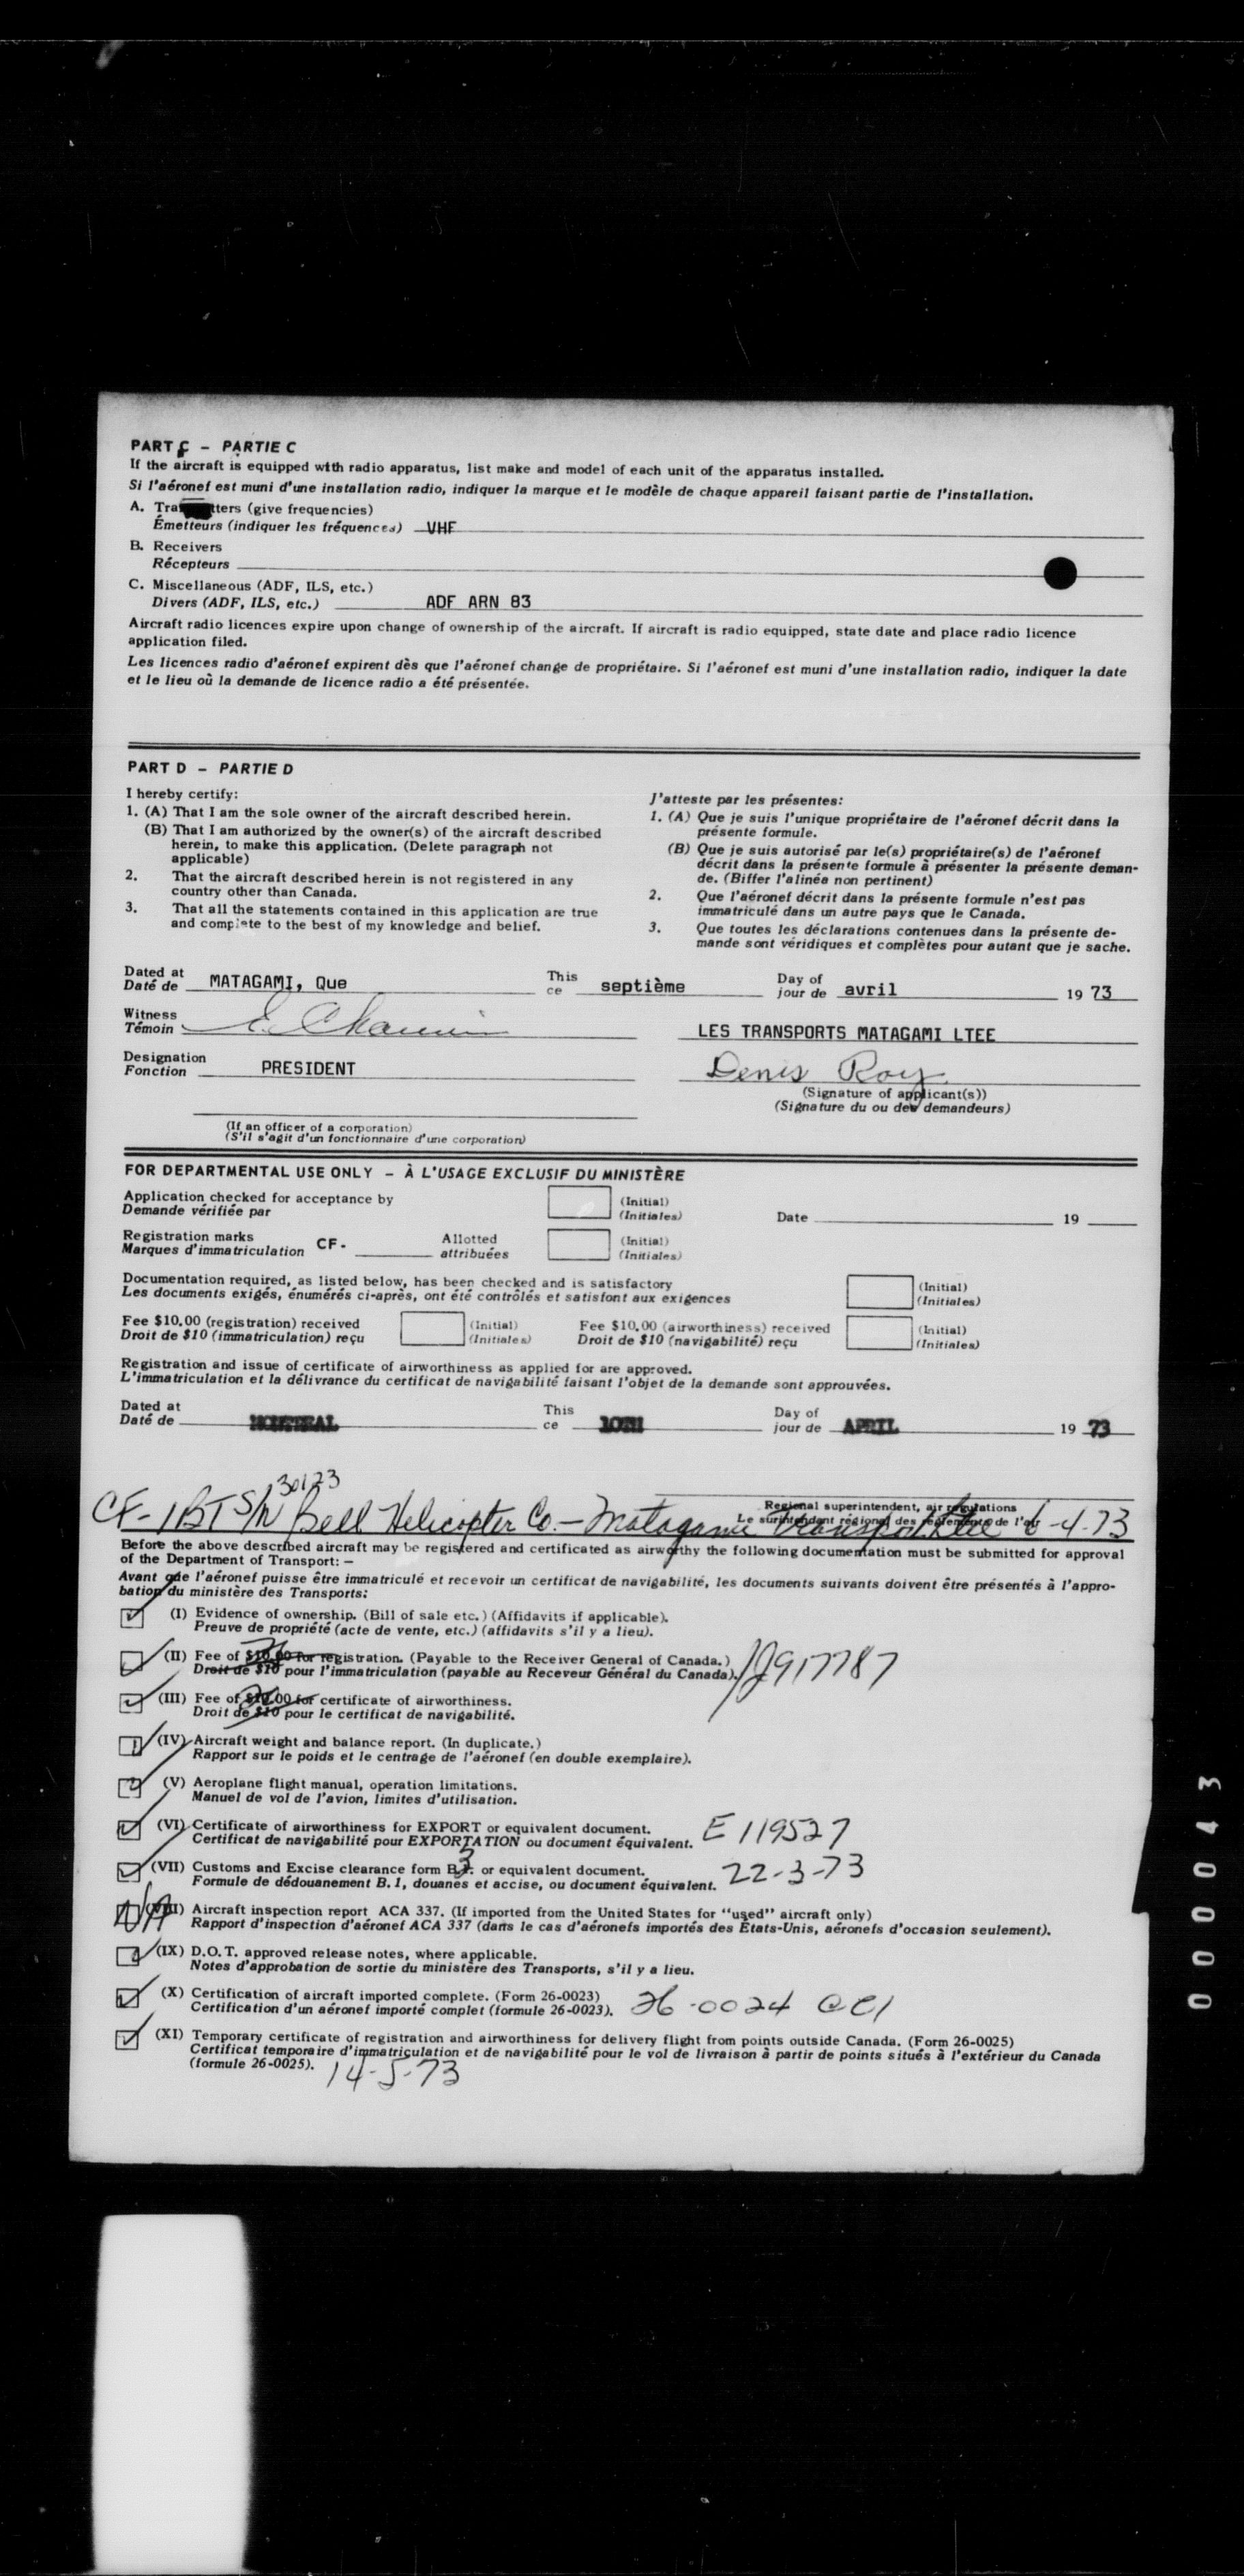 PART C – PARTIE C
If the aircraft is equipped with radio apparatus, list make and model of each unit of the apparatus installed.
Si l'aéronef est muni d'une installation radio, indiquer la marque et le modèle de chaque appareil faisant partie de l'installation.
A. Tra tters (give frequencies)
Émetteurs (indiquer les fréquences) VHF
B. Receivers
Récepteurs
C. Miscellaneous (ADF, ILS, etc.)
Divers (ADF, ILS, etc.) ADF ARN 83
Aircraft radio licences expire upon change of ownership of the aircraft. If aircraft is radio equipped, state date and place radio licence
application filed.
Les licences radio d'aéronef expirent dès que l'aéronef change de propriétaire. Si l'aéronef est muni d'une installation radio, indiquer la date
et le lieu où la demande de licence radio a été présentée.
PART D – PARTIE D
I hereby certify:
1. (A) That I am the sole owner of the aircraft described herein.
(B) That I am authorized by the owner(s) of the aircraft described
herein, to make this application. (Delete paragraph not
applicable)
2. That the aircraft described herein is not registered in any
country other than Canada.
3. That all the statements contained in this application are true
and complete to the best of my knowledge and belief.
J'atteste par les présentes:
1. (A) Que je suis l'unique propriétaire de l'aéronef décrit dans la
présente formule.
(B) Que je suis autorisé par le(s) propriétaire(s) de l'aéronef
décrit dans la présente formule à présenter la présente deman-
de. (Biffer l'alinéa non pertinent)
2. Que l'aéronef décrit dans la présente formule n'est pas
immatriculé dans un autre pays que le Canada.
3. Que toutes les déclarations contenues dans la présente de-
mande sont véridiques et complètes pour autant que je sache.
Dated at This Day of
Daté de MATAGAMI, Que ce septième jour de avril 19 73
Witness
Témoin LES TRANSPORTS MATAGAMI LTEE
Designation
Fonction PRESIDENT Denis Roy
(Signature of applicant(s))
(Signature du ou des demandeurs)
(If an officer of a corporation)
(S'il s'agit d'un fonctionnaire d'une corporation)
FOR DEPARTMENTAL USE ONLY – À L'USAGE EXCLUSIF DU MINISTÈRE
Application checked for acceptance by (Initial)
Demande vérifiée par (Initiales) Date 19
Registration marks CF- Allotted (Initial)
Marques d'immatriculation attribuées (Initiales)
Documentation required, as listed below, has been checked and is satisfactory (Initial)
Les documents exigés, énumérés ci-après, ont été contrôlés et satisfont aux exigences (Initiales)
Fee $10.00 (registration) received (Initial) Fee $10.00 (airworthiness) received (Initial)
Droit de $10 (immatriculation) reçu (Initiales) Droit de $10 (navigabilité) reçu (Initiales)
Registration and issue of certificate of airworthiness as applied for are approved.
L'immatriculation et la délivrance du certificat de navigabilité faisant l'objet de la demande sont approuvées.
Dated at This Day of
Daté de MONTREAL ce 10TH jour de APRIL 19 73
30123
Regional superintendent, air regulations
Le surintendant régional des règlements de l'air
CF-IBT S/N Bell Helicopter Co. – Matagami Transport Ltee 6-4-73
Before the above described aircraft may be registered and certificated as airworthy the following documentation must be submitted for approval
of the Department of Transport: –
Avant que l'aéronef puisse être immatriculé et recevoir un certificat de navigabilité, les documents suivants doivent être présentés à l'appro-
bation du ministère des Transports:
(I) Evidence of ownership. (Bill of sale etc.) (Affidavits if applicable).
Preuve de propriété (acte de vente, etc.) (affidavits s'il y a lieu).
(II) Fee of $10.00 for registration. (Payable to the Receiver General of Canada.)
Droit de $10 pour l'immatriculation (payable au Receveur Général du Canada). J917787
(III) Fee of $10.00 for certificate of airworthiness.
Droit de $10 pour le certificat de navigabilité.
(IV) Aircraft weight and balance report. (In duplicate.)
Rapport sur le poids et le centrage de l'aéronef (en double exemplaire).
(V) Aeroplane flight manual, operation limitations.
Manuel de vol de l'avion, limites d'utilisation.
(VI) Certificate of airworthiness for EXPORT or equivalent document. E 119527
Certificat de navigabilité pour EXPORTATION ou document équivalent.
(VII) Customs and Excise clearance form B3. or equivalent document. 22-3-73
Formule de dédouanement B.1, douanes et accise, ou document équivalent.
N/A (VIII) Aircraft inspection report ACA 337. (If imported from the United States for "used" aircraft only)
Rapport d'inspection d'aéronef ACA 337 (dans le cas d'aéronefs importés des États-Unis, aéronefs d'occasion seulement).
(IX) D.O.T. approved release notes, where applicable.
Notes d'approbation de sortie du ministère des Transports, s'il y a lieu.
(X) Certification of aircraft imported complete. (Form 26-0023)
Certification d'un aéronef importé complet (formule 26-0023). 26-0024
(XI) Temporary certificate of registration and airworthiness for delivery flight from points outside Canada. (Form 26-0025)
Certificat temporaire d'immatriculation et de navigabilité pour le vol de livraison à partir de points situés à l'extérieur du Canada
(formule 26-0025). 14-5-73
000043